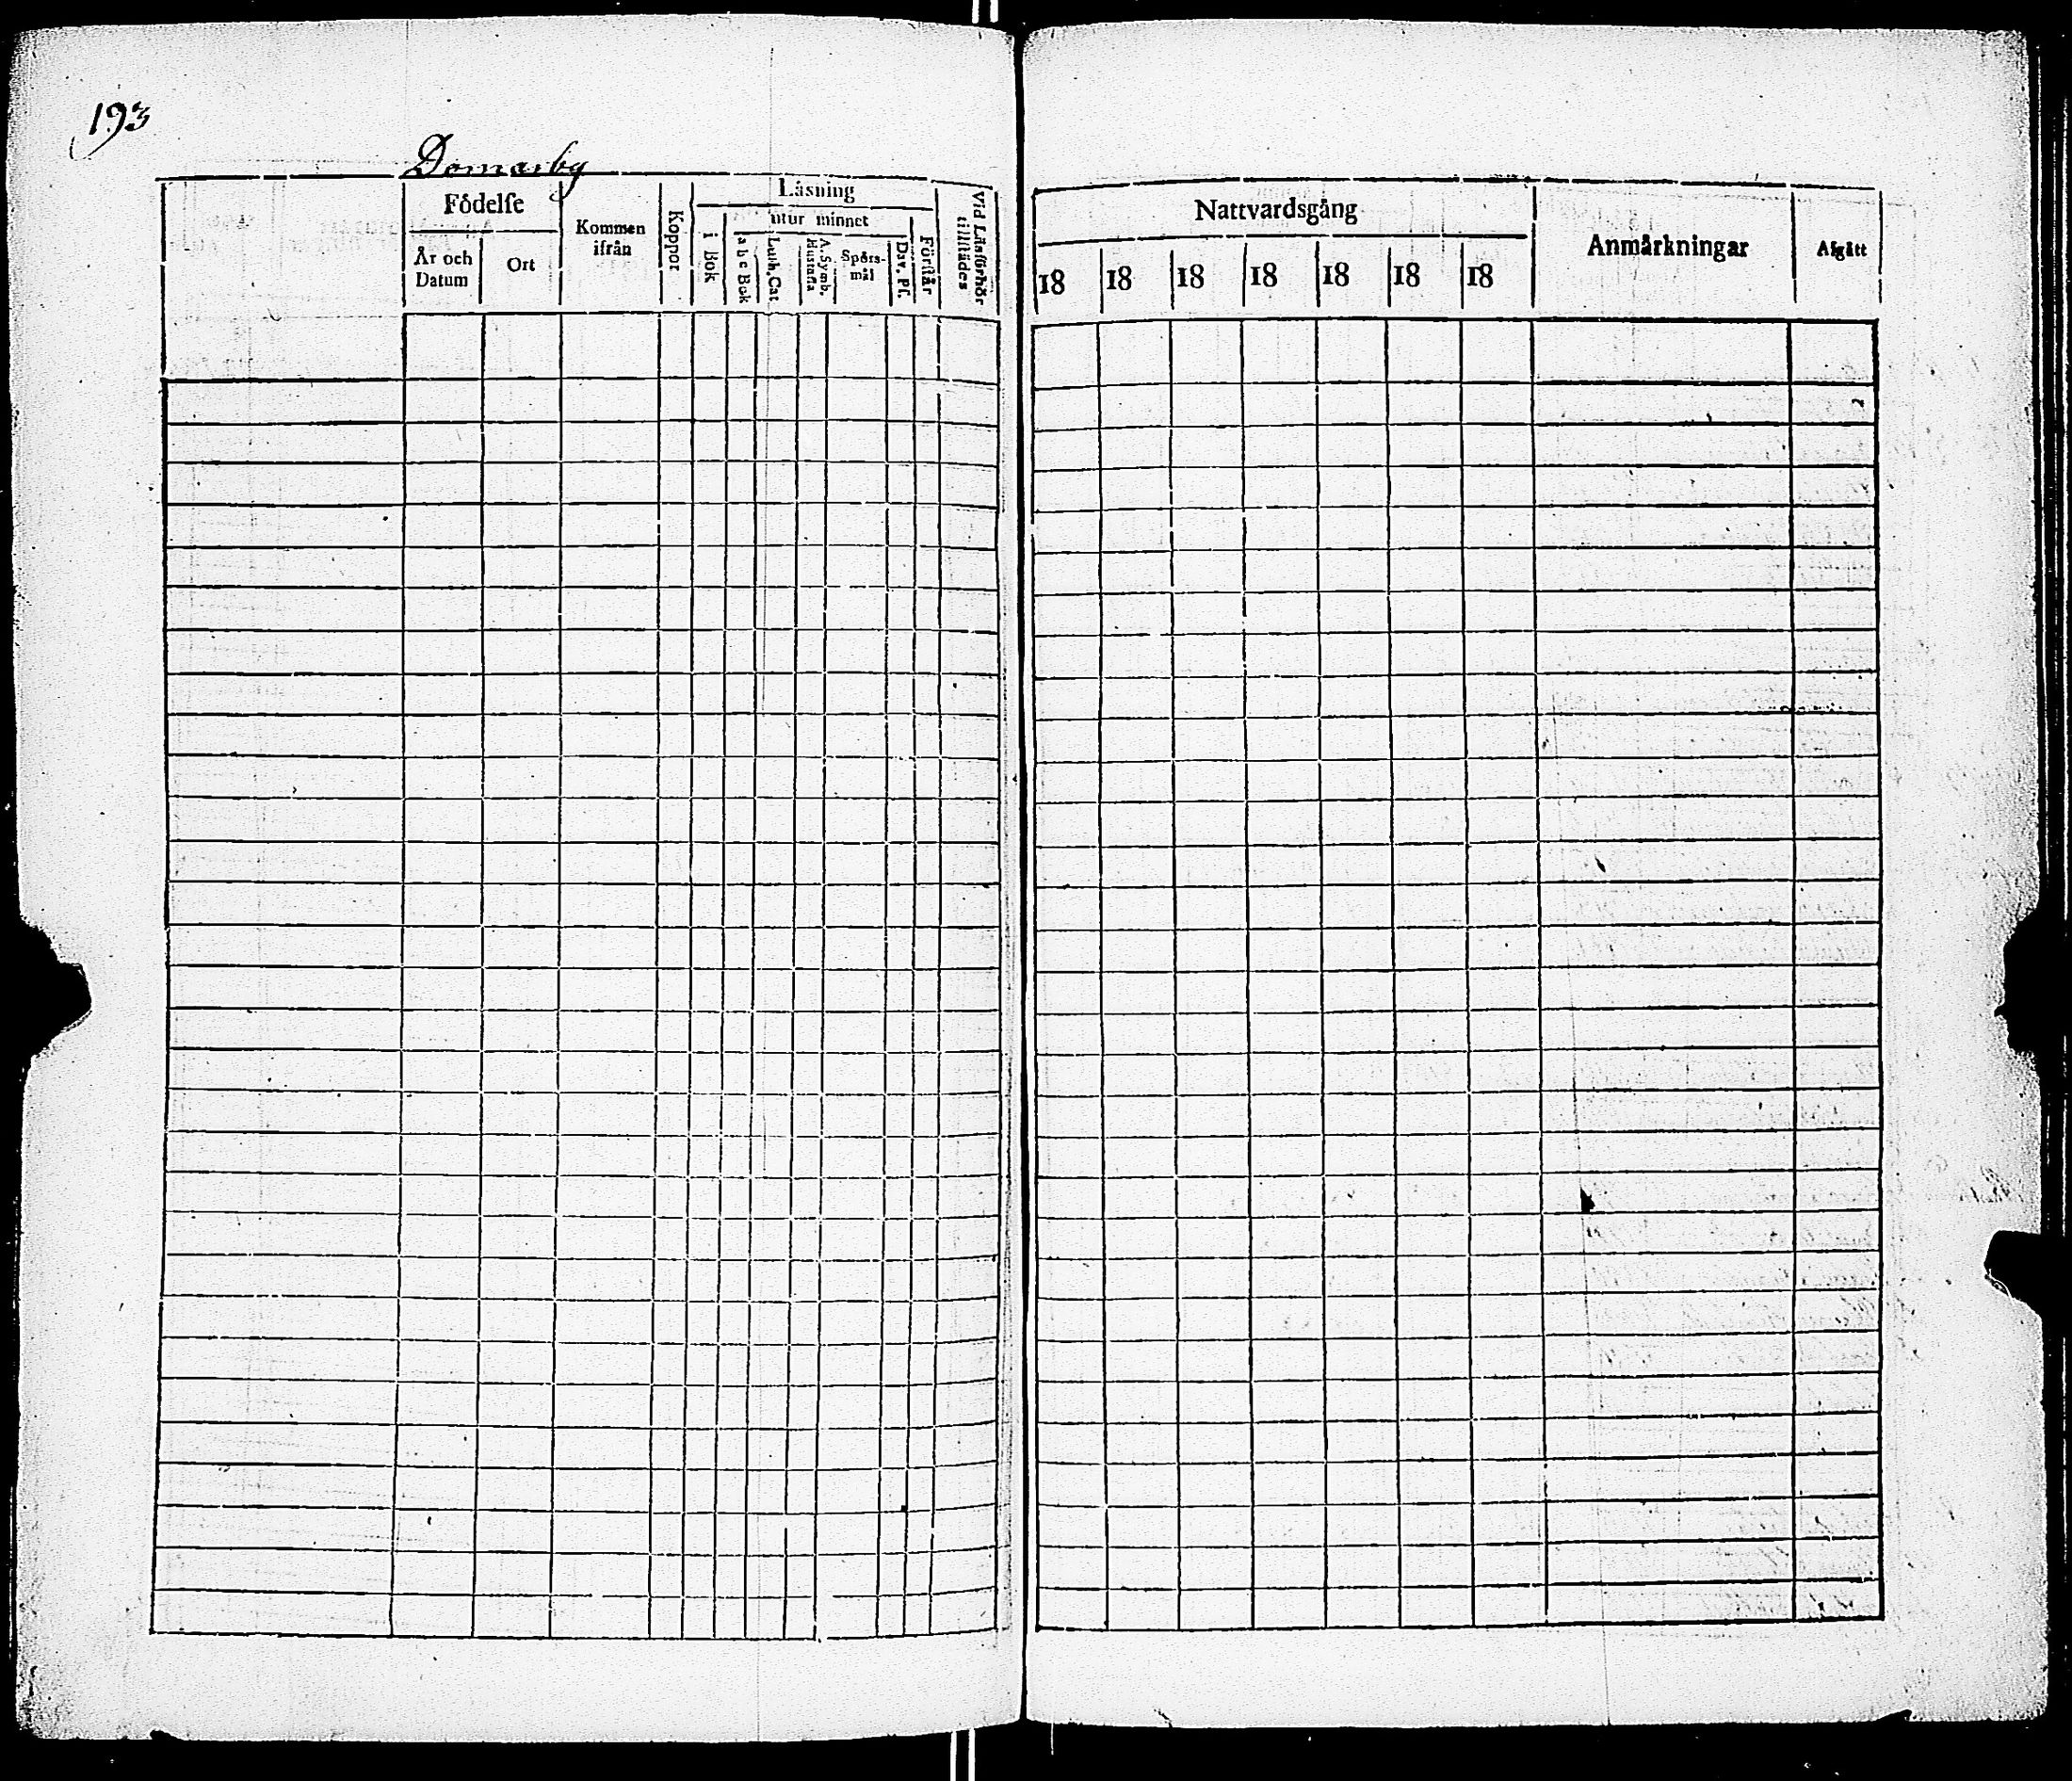 193
Domarby
Födelse
År och Datum
Ort
Kommen ifrån
Koppor
Läsning
i Bok
utur minnet
a b c Bok
Luth. Cat
A. Symb. Hustafla
Spörs-mål
Dav. Ps.
Förstår
Vid Läsförhör tillstädes
Nattvardsgång
18 18 18 18 18 18 18
Anmärkningar
Afgått